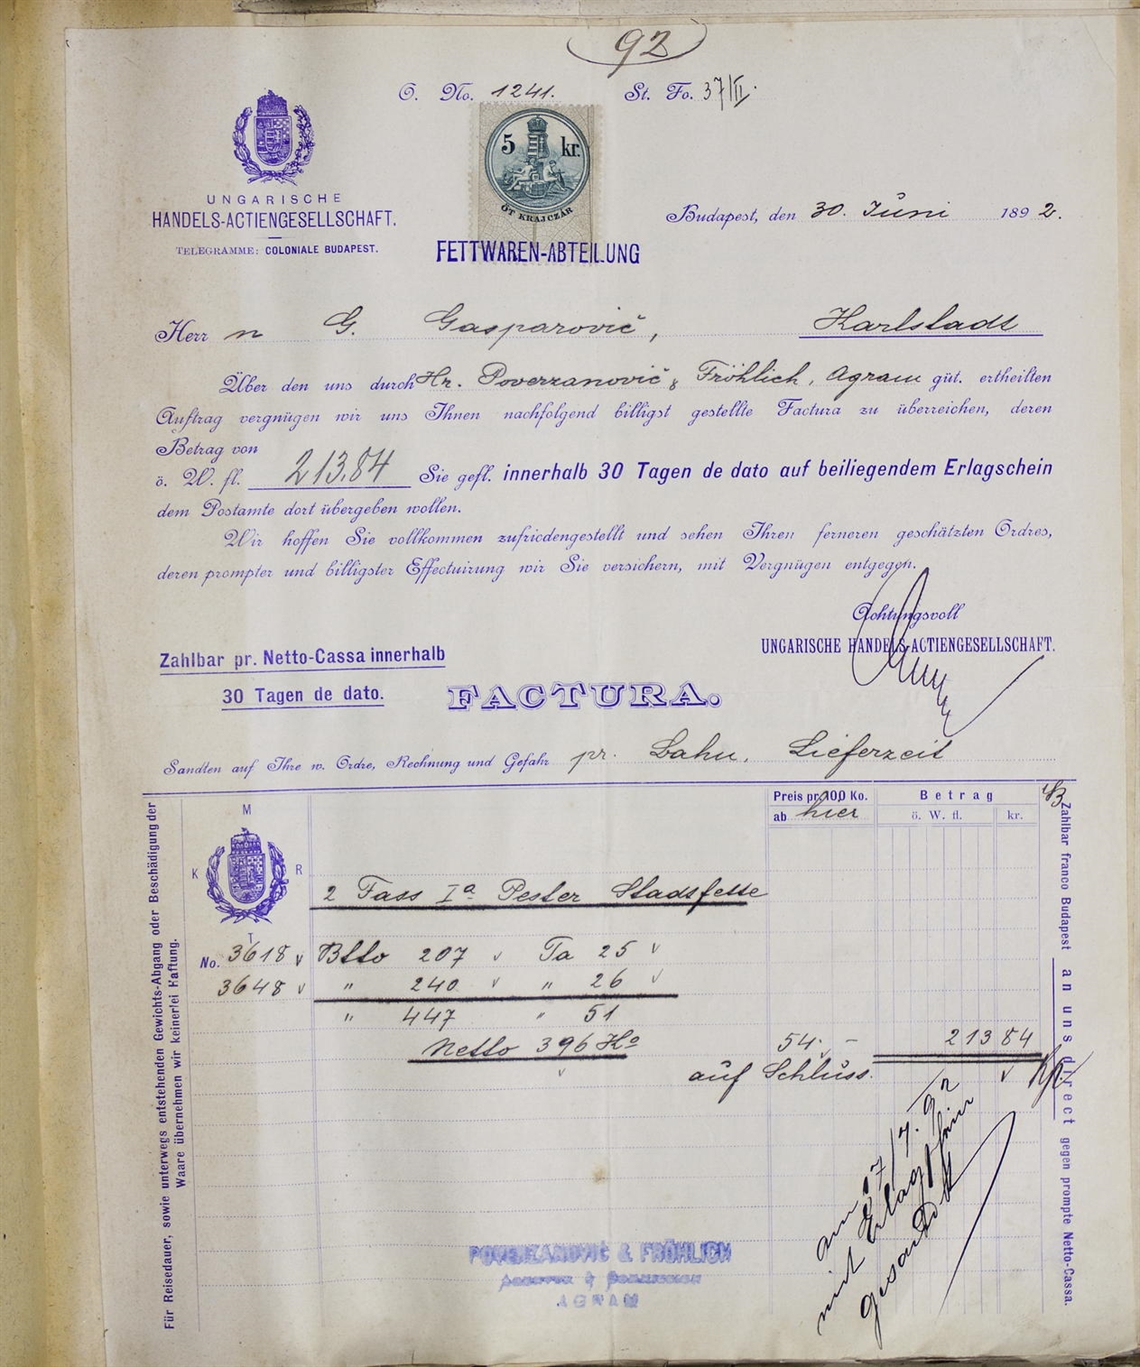 92
O. No. 1241. St. Fo. 37/II.
5 kr.
ÖT KRAJCZÁR
UNGARISCHE
HANDELS-ACTIENGESELLSCHAFT.
TELEGRAMME: COLONIALE BUDAPEST.
FETTWAREN-ABTEILUNG
Budapest, den 30. Juni 1892.
Herrn G. Gasparović, Karlstadt
Über den uns durch Hr. Poverzanović & Fröhlich, Agram güt. ertheilten
Auftrag vergnügen wir uns Ihnen nachfolgend billigst gestellte Factura zu überreichen, deren
Betrag von
ö. W. fl. 213.84 Sie gefl. innerhalb 30 Tagen de dato auf beiliegendem Erlagschein
dem Postamte dort übergeben wollen.
Wir hoffen Sie vollkommen zufriedengestellt und sehen Ihren ferneren geschätzten Ordres,
deren prompter und billigster Effectuirung wir Sie versichern, mit Vergnügen entgegen.
Achtungsvoll
UNGARISCHE HANDELS-ACTIENGESELLSCHAFT.
Zahlbar pr. Netto-Cassa innerhalb
30 Tagen de dato.
FACTURA.
Sandten auf Ihre w. Ordre, Rechnung und Gefahr pr. Bahn, Lieferzeit
Preis pr. 100 Ko. Betrag
ab hier ö. W. fl. kr.
M
K R
T
2 Fass Iª Pester Stadtfette
No. 3618 Btto 207 Ta 25
3648 " 240 " 26
" 447 " 51
Netto 396 Ko 54.- 213 84
auf Schluss.
am 27/7.92
mit Erlagschein
gesandt
POVERZANOVIĆ & FRÖHLICH
AGENTUR & COMMISSION
AGRAM
Für Reisedauer, sowie unterwegs entstehenden Gewichts-Abgang oder Beschädigung der
Waare übernehmen wir keinerlei Haftung.
Zahlbar franco Budapest an uns direct gegen prompte Netto-Cassa.